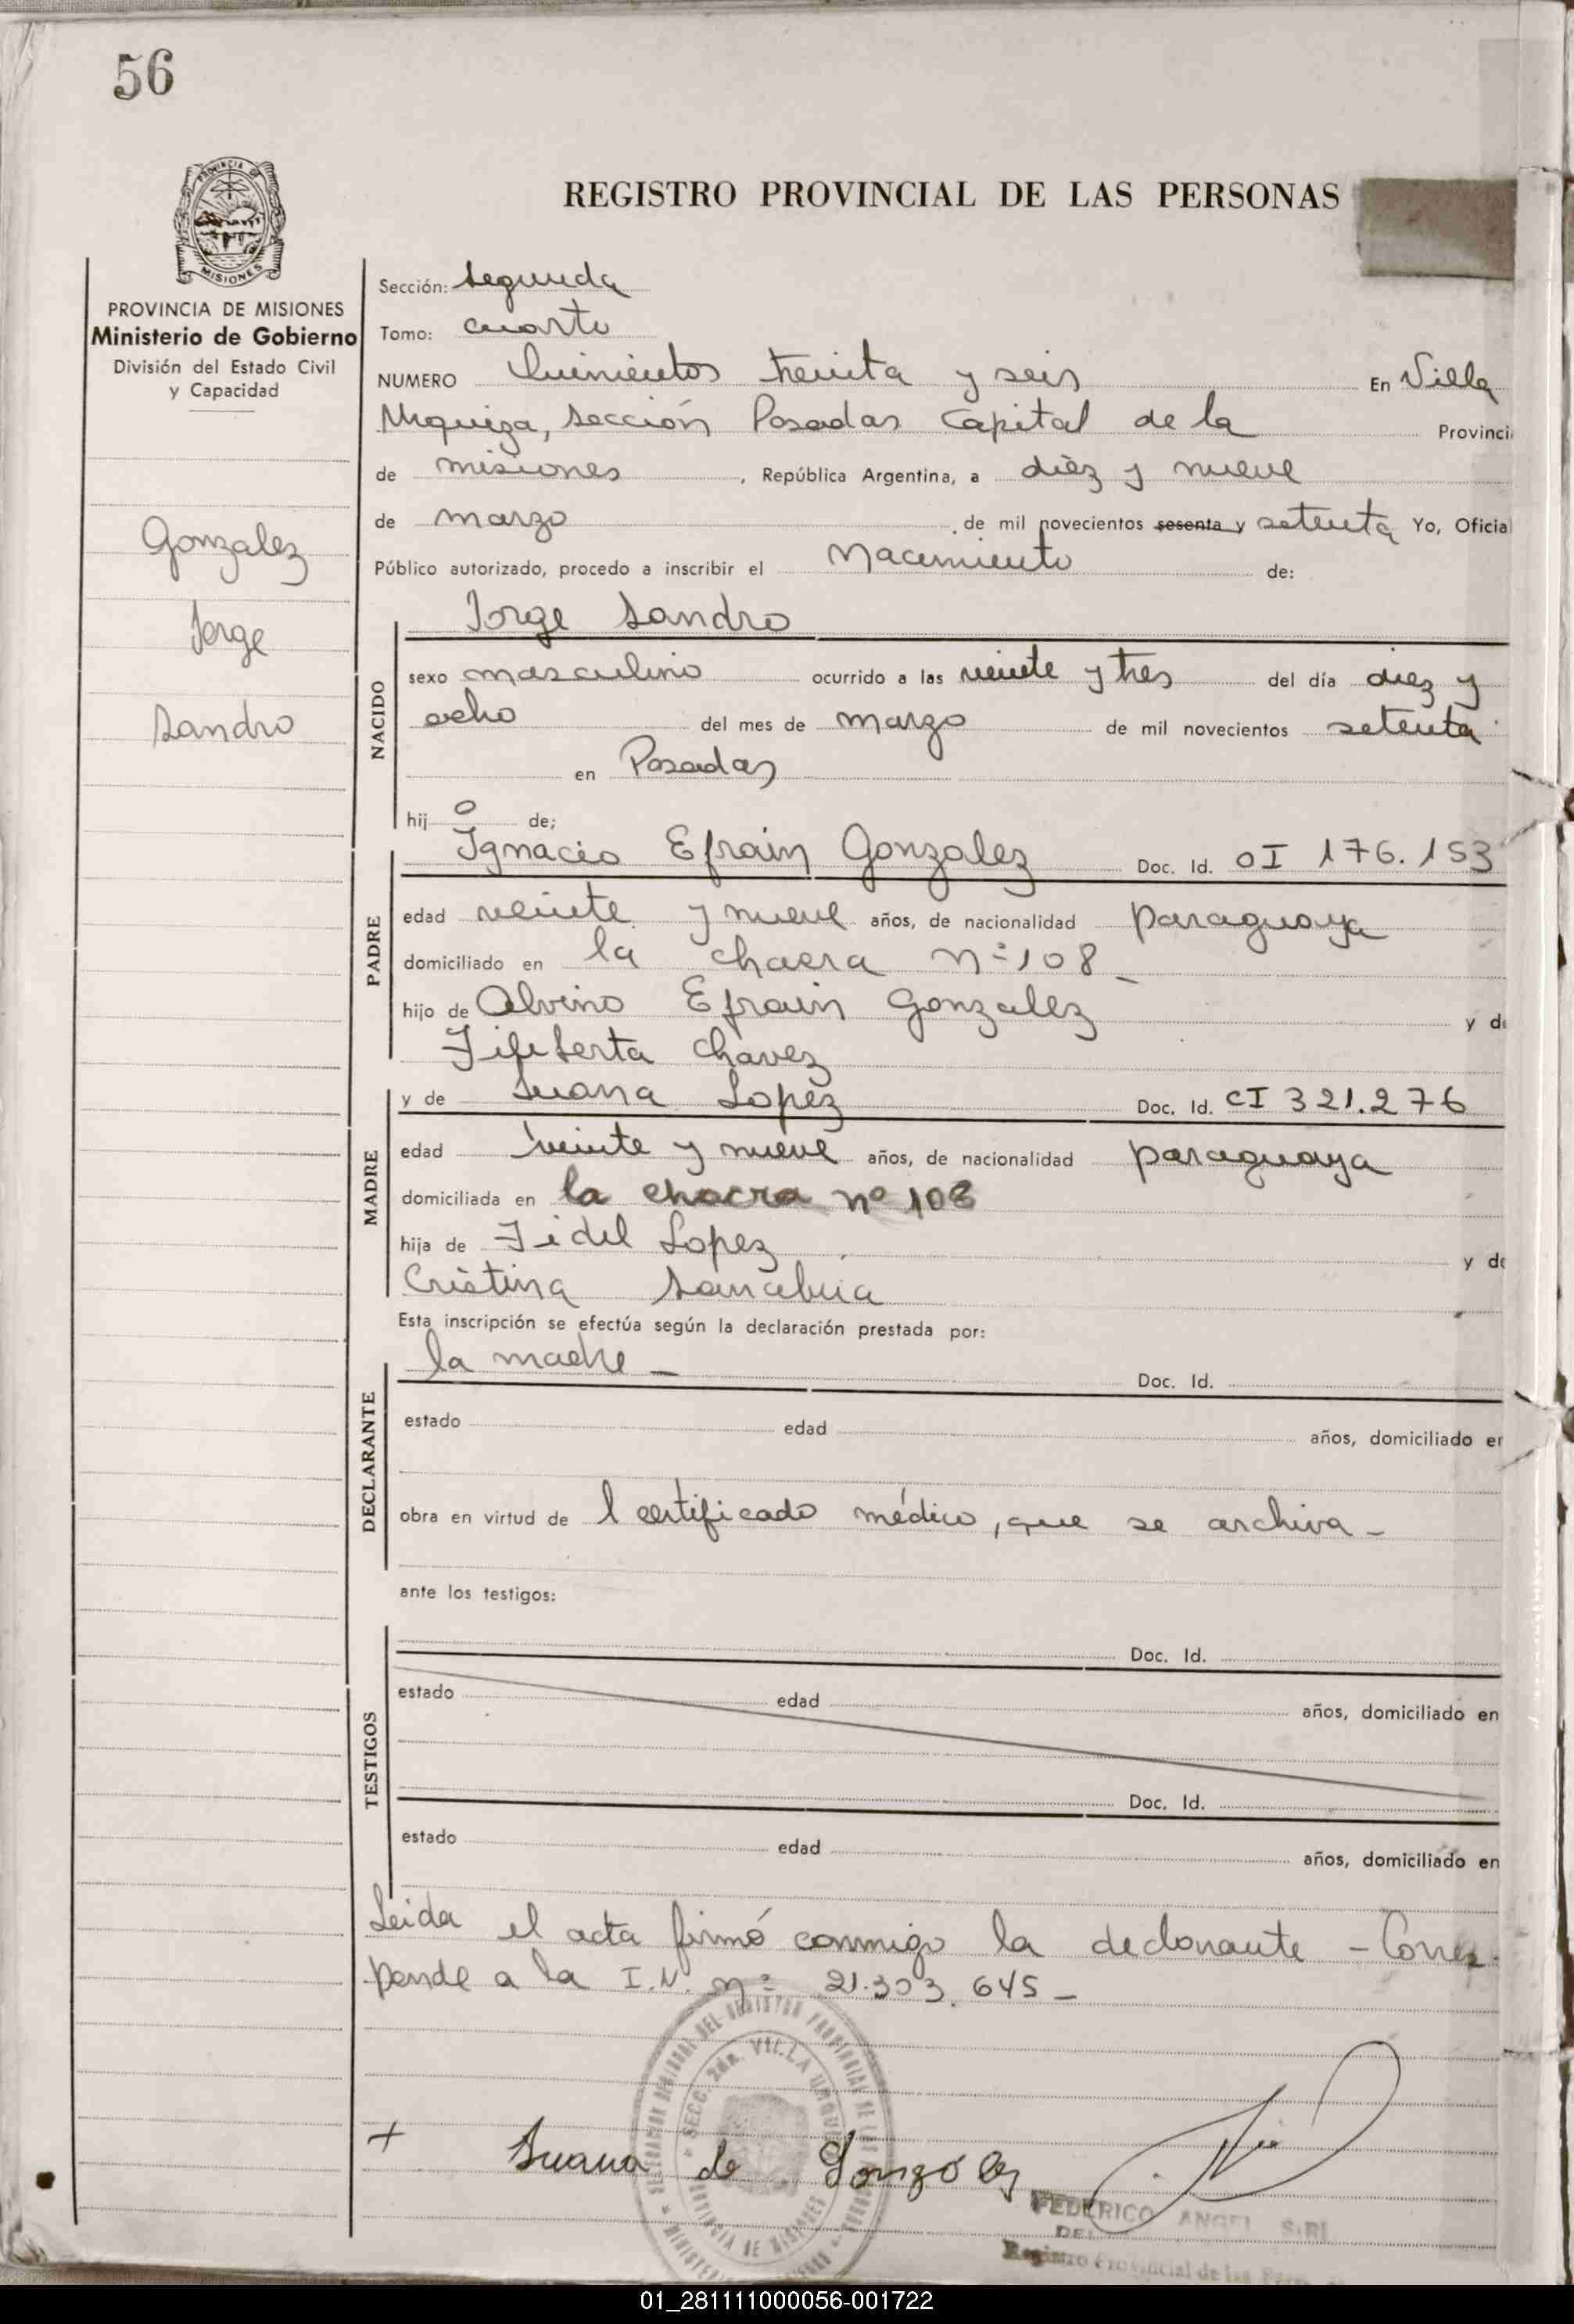 56
PROVINCIA DE
MISIONES
REGISTRO PROVINCIAL DE LAS PERSONAS
PROVINCIA DE MISIONES
Ministerio de Gobierno
División del Estado Civil
y Capacidad
Gonzalez
Jorge
Sandro
Sección: segunda
Tomo: cuarto
NUMERO Quinientos treinta y seis En Villa
Urquiza, sección Posadas Capital de la Provinci
de misiones, República Argentina, a diez y nueve
de marzo de mil novecientos sesenta y setenta Yo, Oficial
Público autorizado, procedo a inscribir el Nacimiento de:
NACIDO
Jorge Sandro
sexo masculino ocurrido a las veinte y tres del día diez y
ocho del mes de marzo de mil novecientos setenta
en Posadas
hij o de;
PADRE
Ignacio Efrain Gonzalez Doc. Id. 176.153
edad veinte y nueve años, de nacionalidad paraguaya
domiciliado en la chacra nº 108
hijo de Alvino Efrain Gonzalez y de
Chavez
MADRE
y de Juana Lopez Doc. Id. CI 321.276
edad veinte y nueve años, de nacionalidad paraguaya
domiciliada en la chacra nº 108
hija de Fidel Lopez y de
Cristina Sanabria
Esta inscripción se efectúa según la declaración prestada por:
DECLARANTE
la madre — Doc. Id.
estado edad años, domiciliado en
obra en virtud de l certificado médico, que se archiva -
ante los testigos:
TESTIGOS
Doc. Id.
estado edad años, domiciliado en
Doc. Id.
estado edad años, domiciliado en
Leida el acta firmó conmigo la declarante - Corres
ponde a la I.N. nº 21.303.645 -
SECC. 2da. VILLA URQUIZA
Juana de Gonzalez
FEDERICO ANGEL
DEL
Registro Provincial de las
01_281111000056-001722